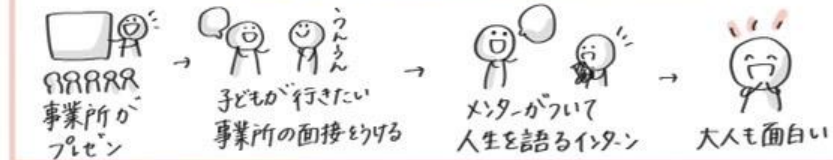 事業所が
プレゼン
→
うんうん
子どもが行きたい
事業所の面接をうける
→
メンターがついて
人生を語るインターン
→
大人も面白い